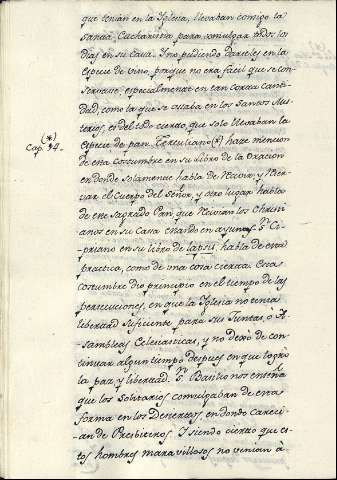 que tenian en la Iglesia, llevaban comigo la
Santa Eucharistia para comulgar todos los
dias en su Casa. Y no pudiendo darseles en la
especie de vino, porque no era fácil que se con
servase, especialmente en tan corta canti
dad, como la que se usaba en los Santos Mis
terios, es del todo cierto, que solo llevaban la
especie de pan. Tertuliano (*) hace mencion
de esta costumbre en su libro de la Oracion
(*)
Cap. 14.
en donde solamente habla de recivir, y reser
var el Cuerpo del Señor, y otro lugar habla
de este Sagrado Pan que recivian los Christi
anos en su Casa estando en ayunas. Sn. Ci
priano en su libro de lapsis, habla de esta
practica, como de una cosa cierta. Esta
costumbre dio principio en el tiempo de las
persecuciones, en que la Iglesia no tenia
libertad suficiente para sus Juntas, o A
sambleas Eclesiasticas, y no dexó de con
tinuar algun tiempo despues, en que logró
la paz, y libertad. Sn. Basilio nos enseña
que los Solitarios comulgaban de esta
forma en los Desiertos, en donde careci
an de Presbiteros. Y siendo cierto que es
tos hombres maravillosos no venian à